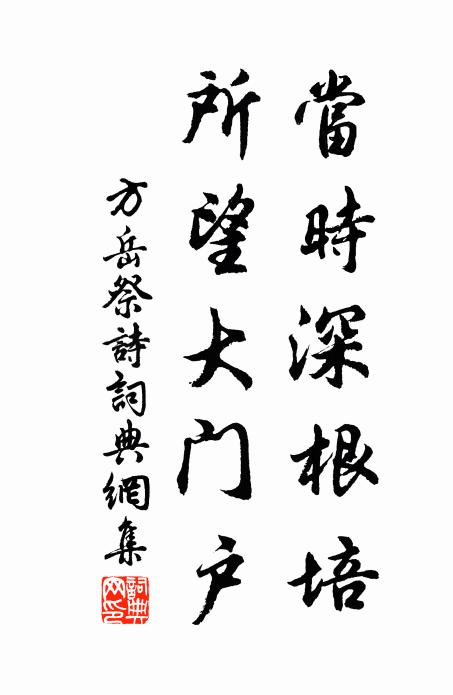 當時深根培
所望大門户
方岳祭詩詞典網集
詞典網印